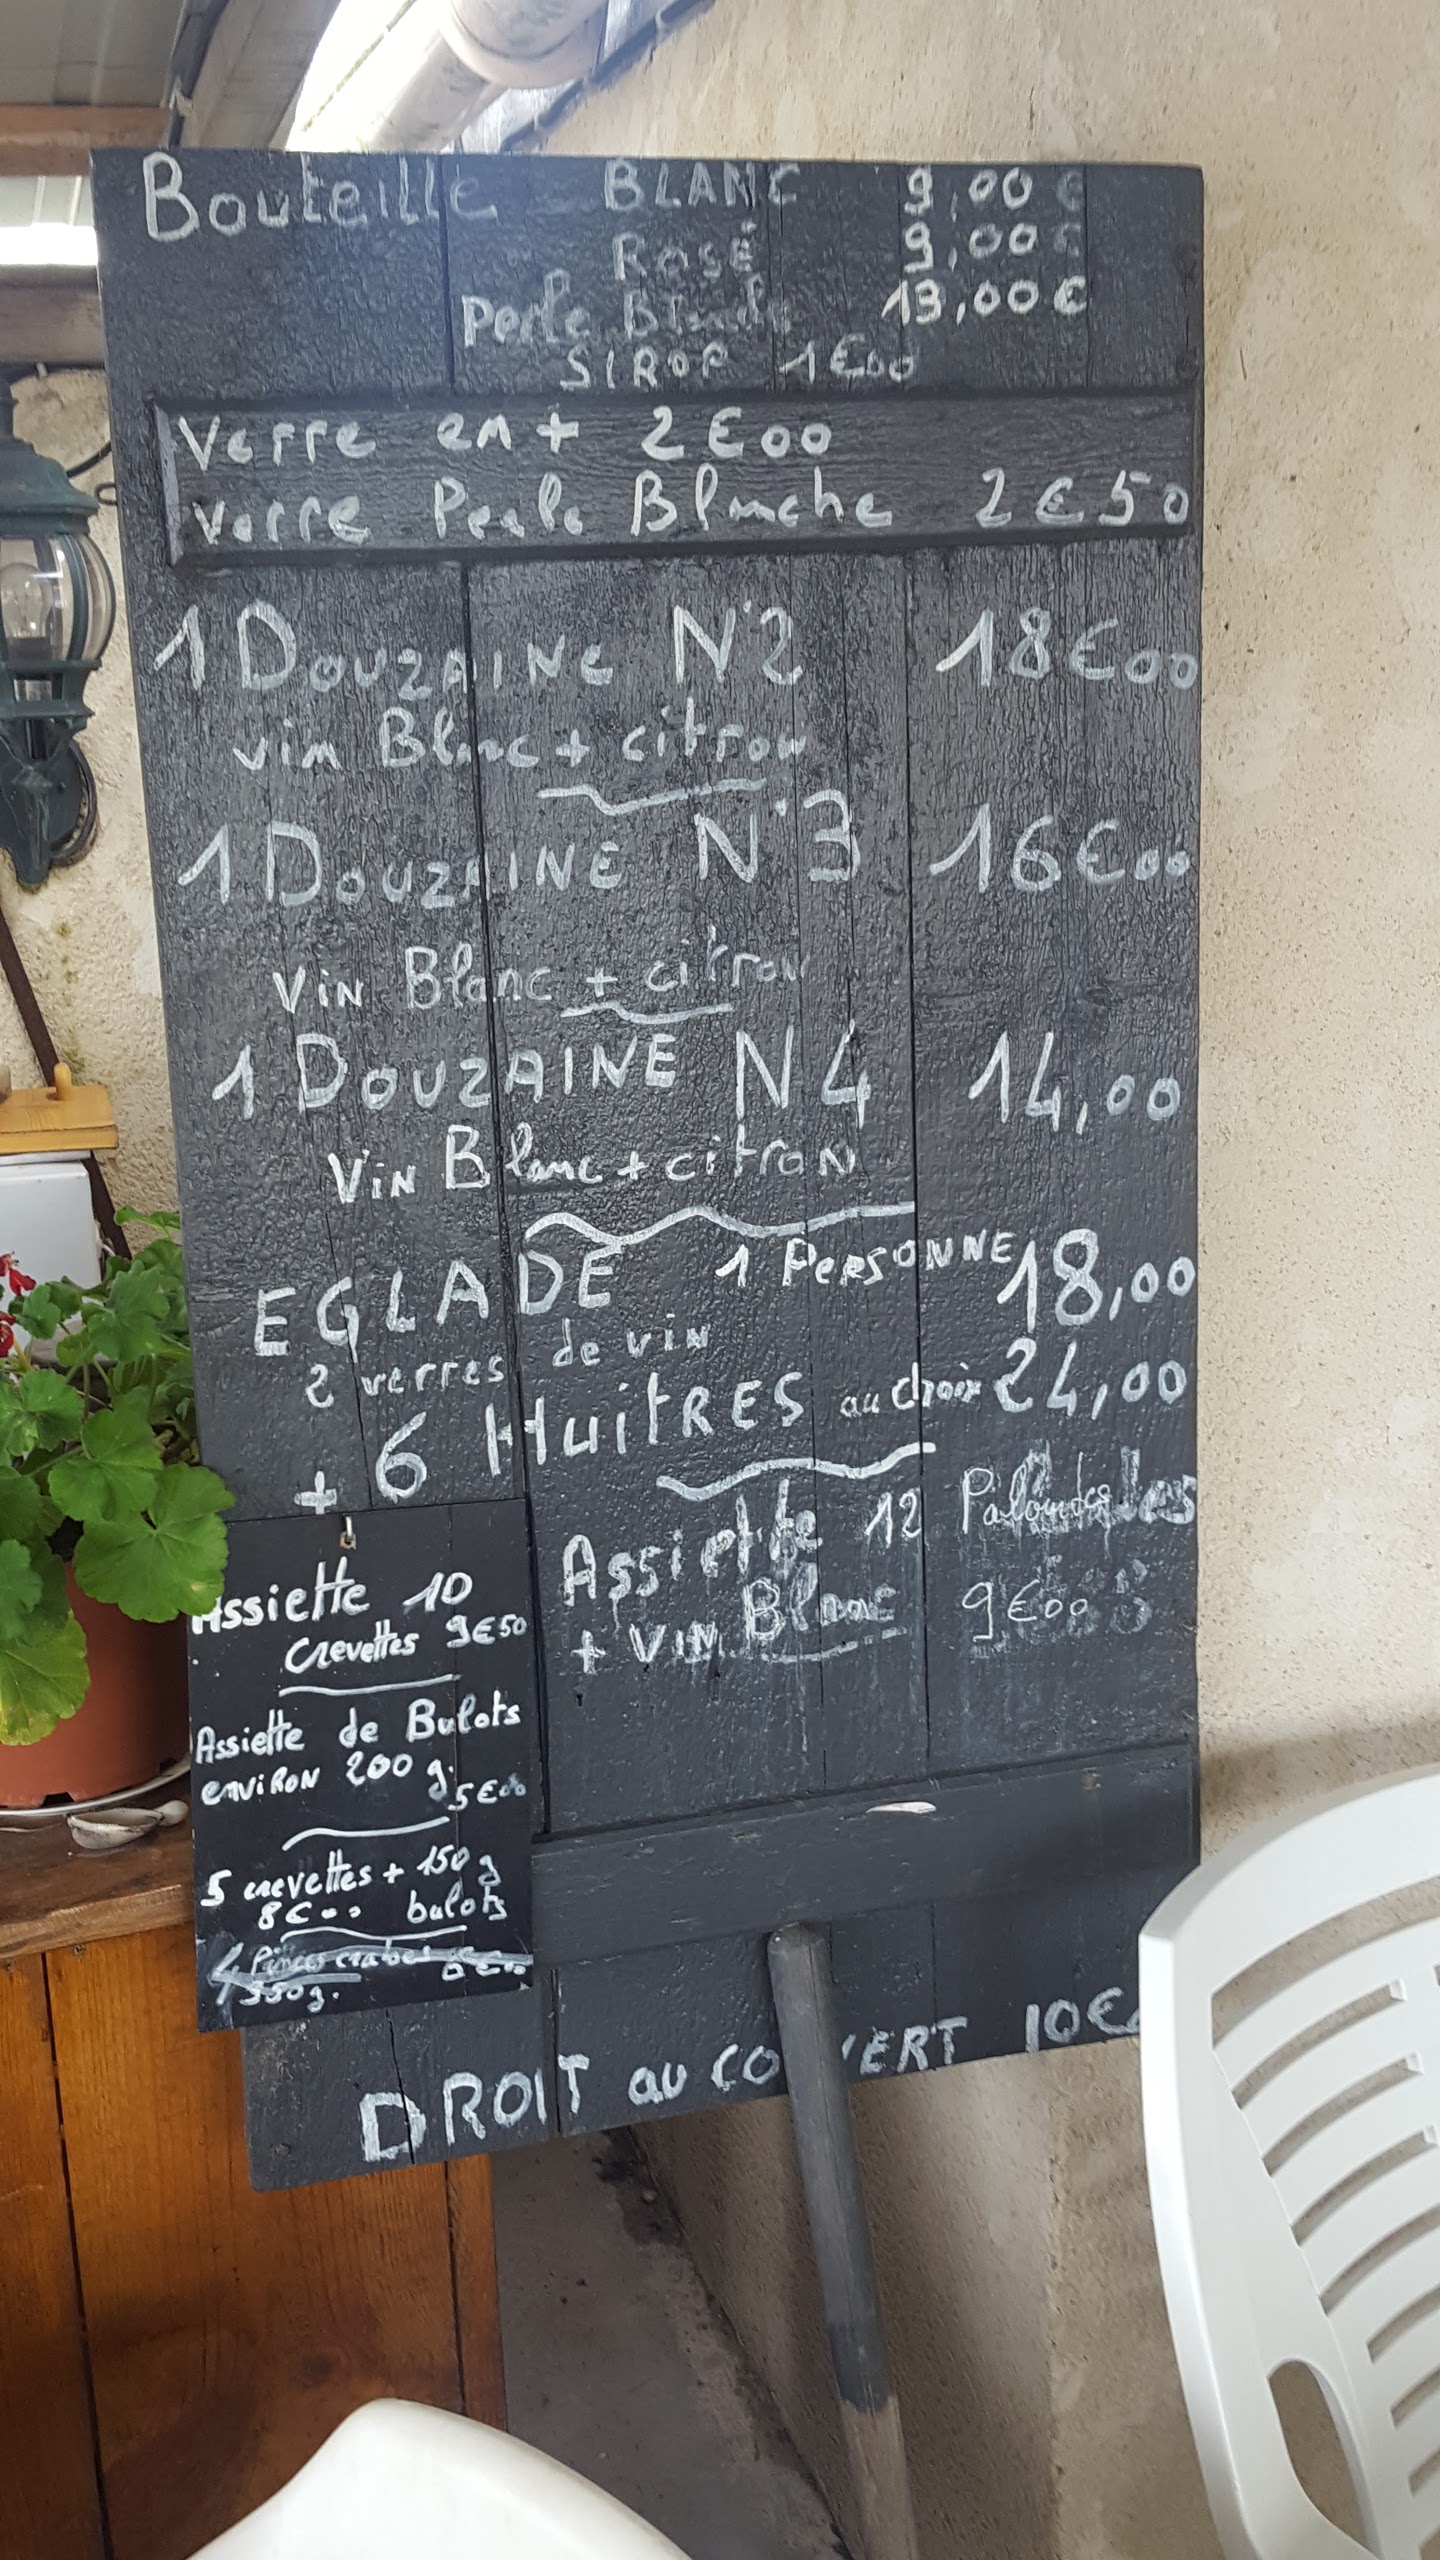 Bouteille BLANC 9,00 €
ROSÉ 9,00 €
Perle Blanche 13,00 €
SIROP 1€00
Verre en + 2€00
Verre Perle Blanche 2€50
1 DOUZAINE N°2 18€00
vin Blanc + citron
1 DOUZAINE N°3 16€00
VIN Blanc + citron
1 DOUZAINE N4 14,00
VIN Blanc + citron
EGLADE 1 PERSONNE 18,00
2 verres de vin
+ 6 HuitRES au choix 24,00
Assiette 12 Palourdes
+ VIN Blanc 9€00
Assiette 10
crevettes 9€50
Assiette de Bulots
enviRON 200 g. 5€00
5 crevettes + 150 g
8€00 bulots
4 Pinces crabe
350g.
DROIT au COUVERT 10€